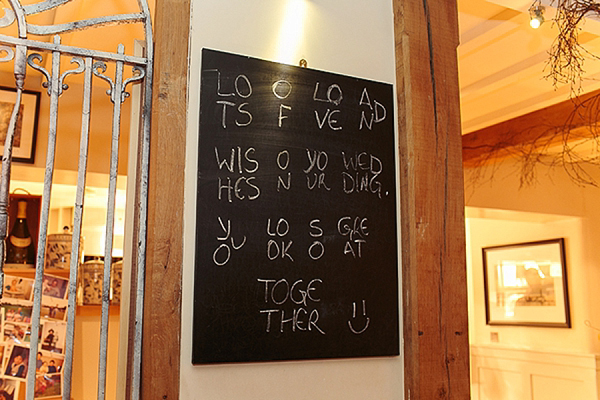 LO O LO A
TS F VE ND
WIS O YO WED
HES N UR DING.
Y LO S GRE
OU OK O AT
TOGE
THER